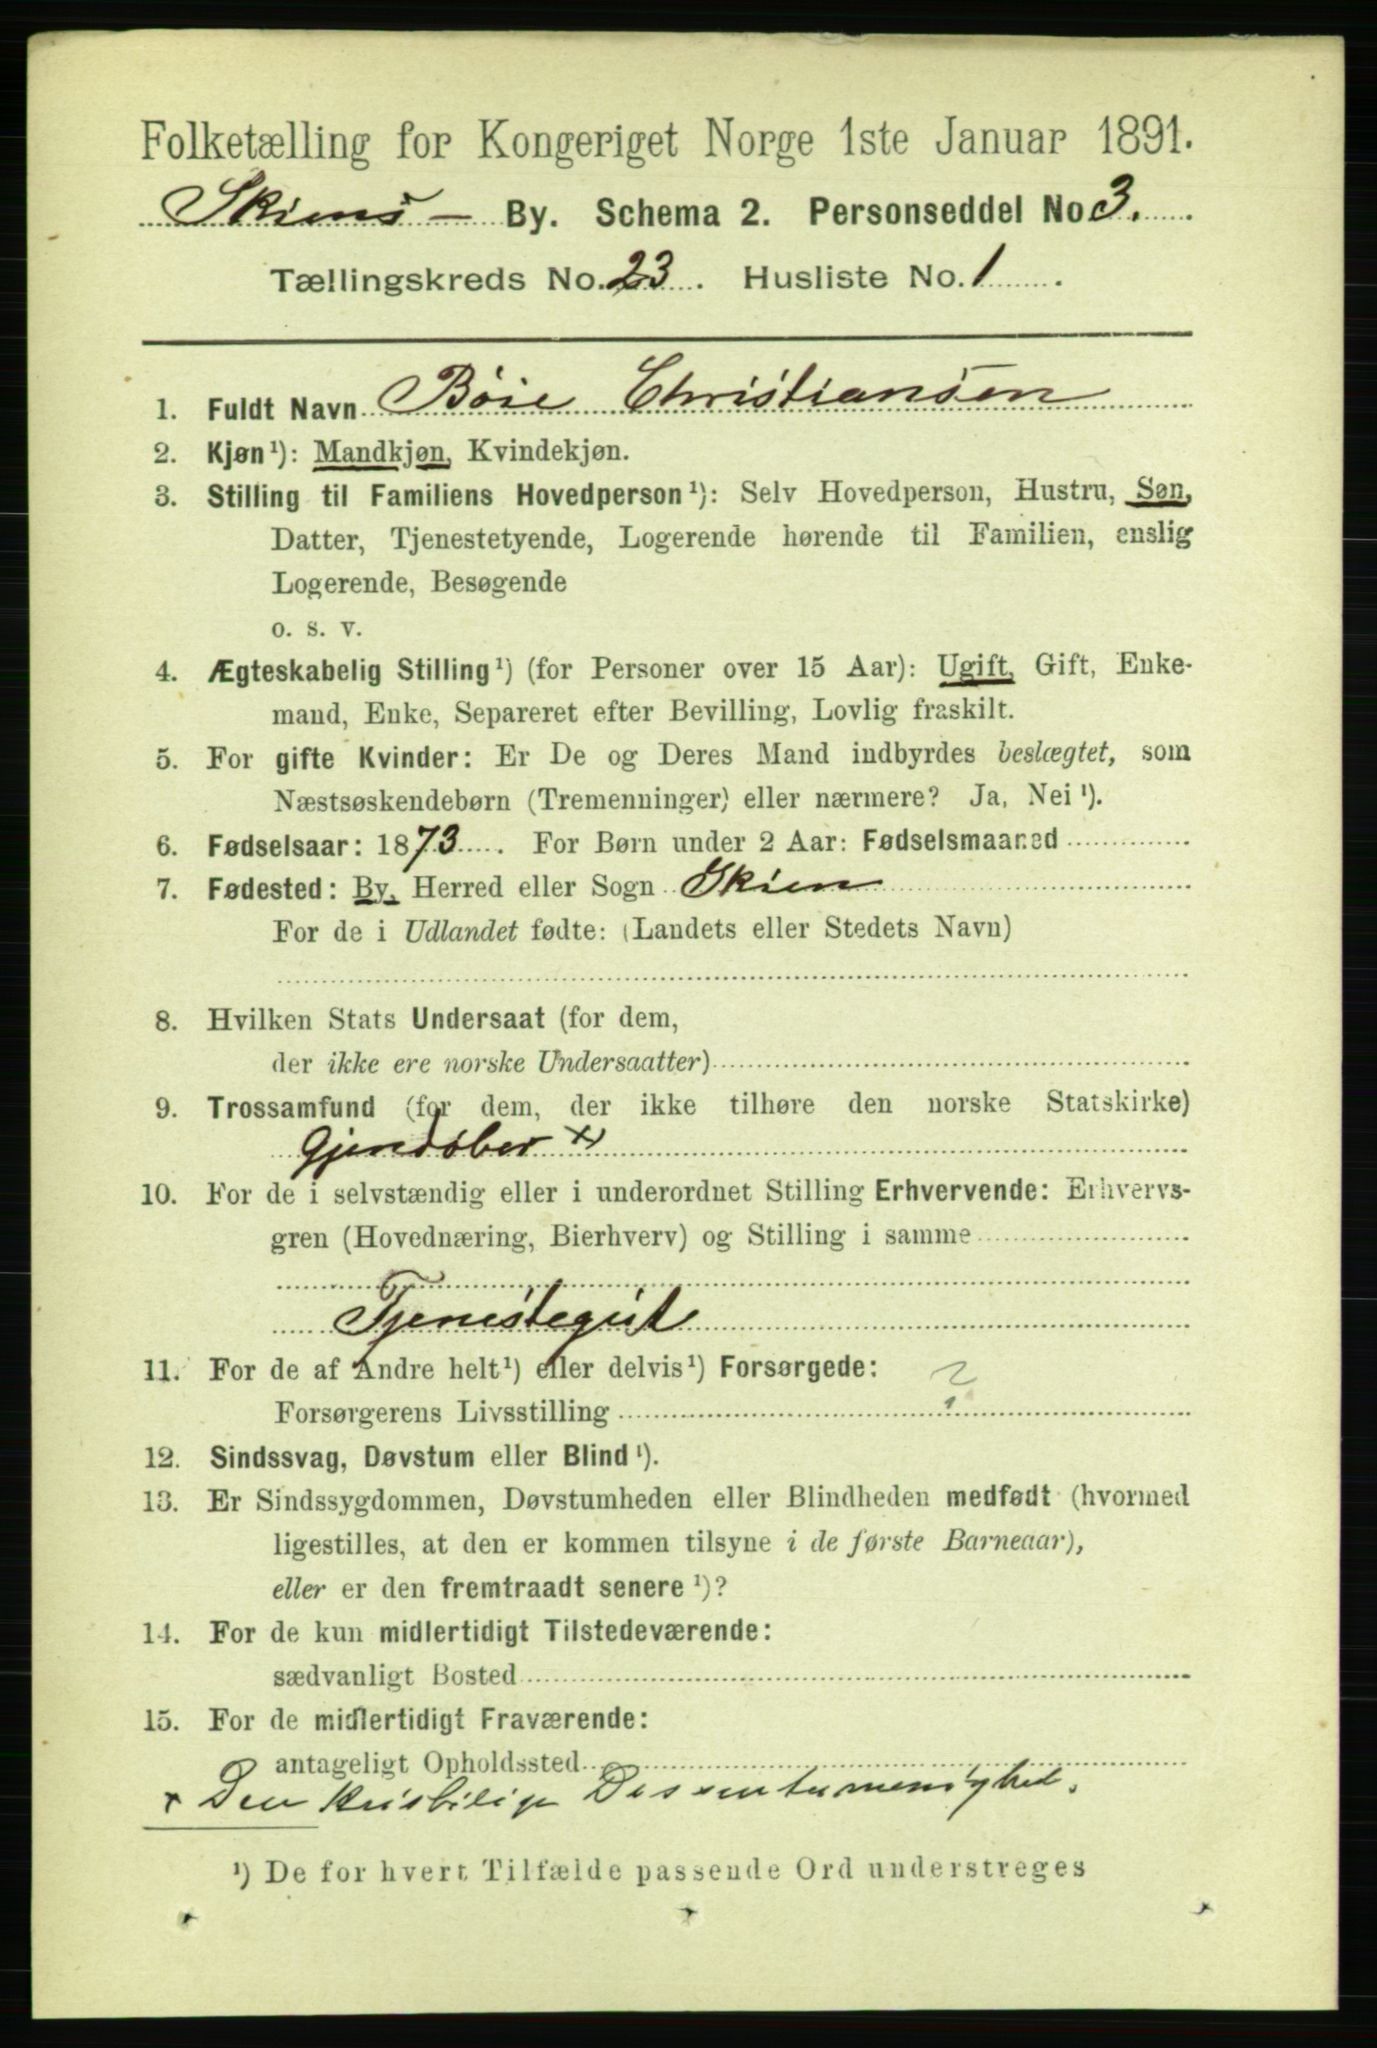 Folketælling for Kongeriget Norge 1ste Januar 1891.
Skiens — By. Schema 2. Personseddel No 3.
Tællingskreds No. 23. Husliste No. 1.
1. Fuldt Navn Bøie Christiansen
2. Kjøn¹): Mandkjøn, Kvindekjøn.
3. Stilling til Familiens Hovedperson¹): Selv Hovedperson, Hustru, Søn,
Datter, Tjenestetyende, Logerende hørende til Familien, enslig
Logerende, Besøgende
o. s. v.
4. Ægteskabelig Stilling¹) (for Personer over 15 Aar): Ugift, Gift, Enke-
mand, Enke, Separeret efter Bevilling, Lovlig fraskilt.
5. For gifte Kvinder: Er De og Deres Mand indbyrdes beslægtet, som
Næstsøskendebørn (Tremenninger) eller nærmere? Ja, Nei¹).
6. Fødselsaar: 1873. For Børn under 2 Aar: Fødselsmaaned
7. Fødested: By, Herred eller Sogn Skien
For de i Udlandet fødte: (Landets eller Stedets Navn)
8. Hvilken Stats Undersaat (for dem,
der ikke ere norske Undersaatter)
9. Trossamfund (for dem, der ikke tilhøre den norske Statskirke)
Gjendøber x)
10. For de i selvstændig eller i underordnet Stilling Erhvervende: Erhvervs-
gren (Hovednæring, Bierhverv) og Stilling i samme
Tjenestegut
11. For de af Andre helt¹) eller delvis¹) Forsørgede:
Forsørgerens Livsstilling ?
12. Sindssvag, Døvstum eller Blind¹).
13. Er Sindssygdommen, Døvstumheden eller Blindheden medfødt (hvormed
ligestilles, at den er kommen tilsyne i de første Barneaar),
eller er den fremtraadt senere¹)?
14. For de kun midlertidigt Tilstedeværende:
sædvanligt Bosted
15. For de midlertidigt Fraværende:
antageligt Opholdssted
x Den Dissentermenighed.
¹) De for hvert Tilfælde passende Ord understreges